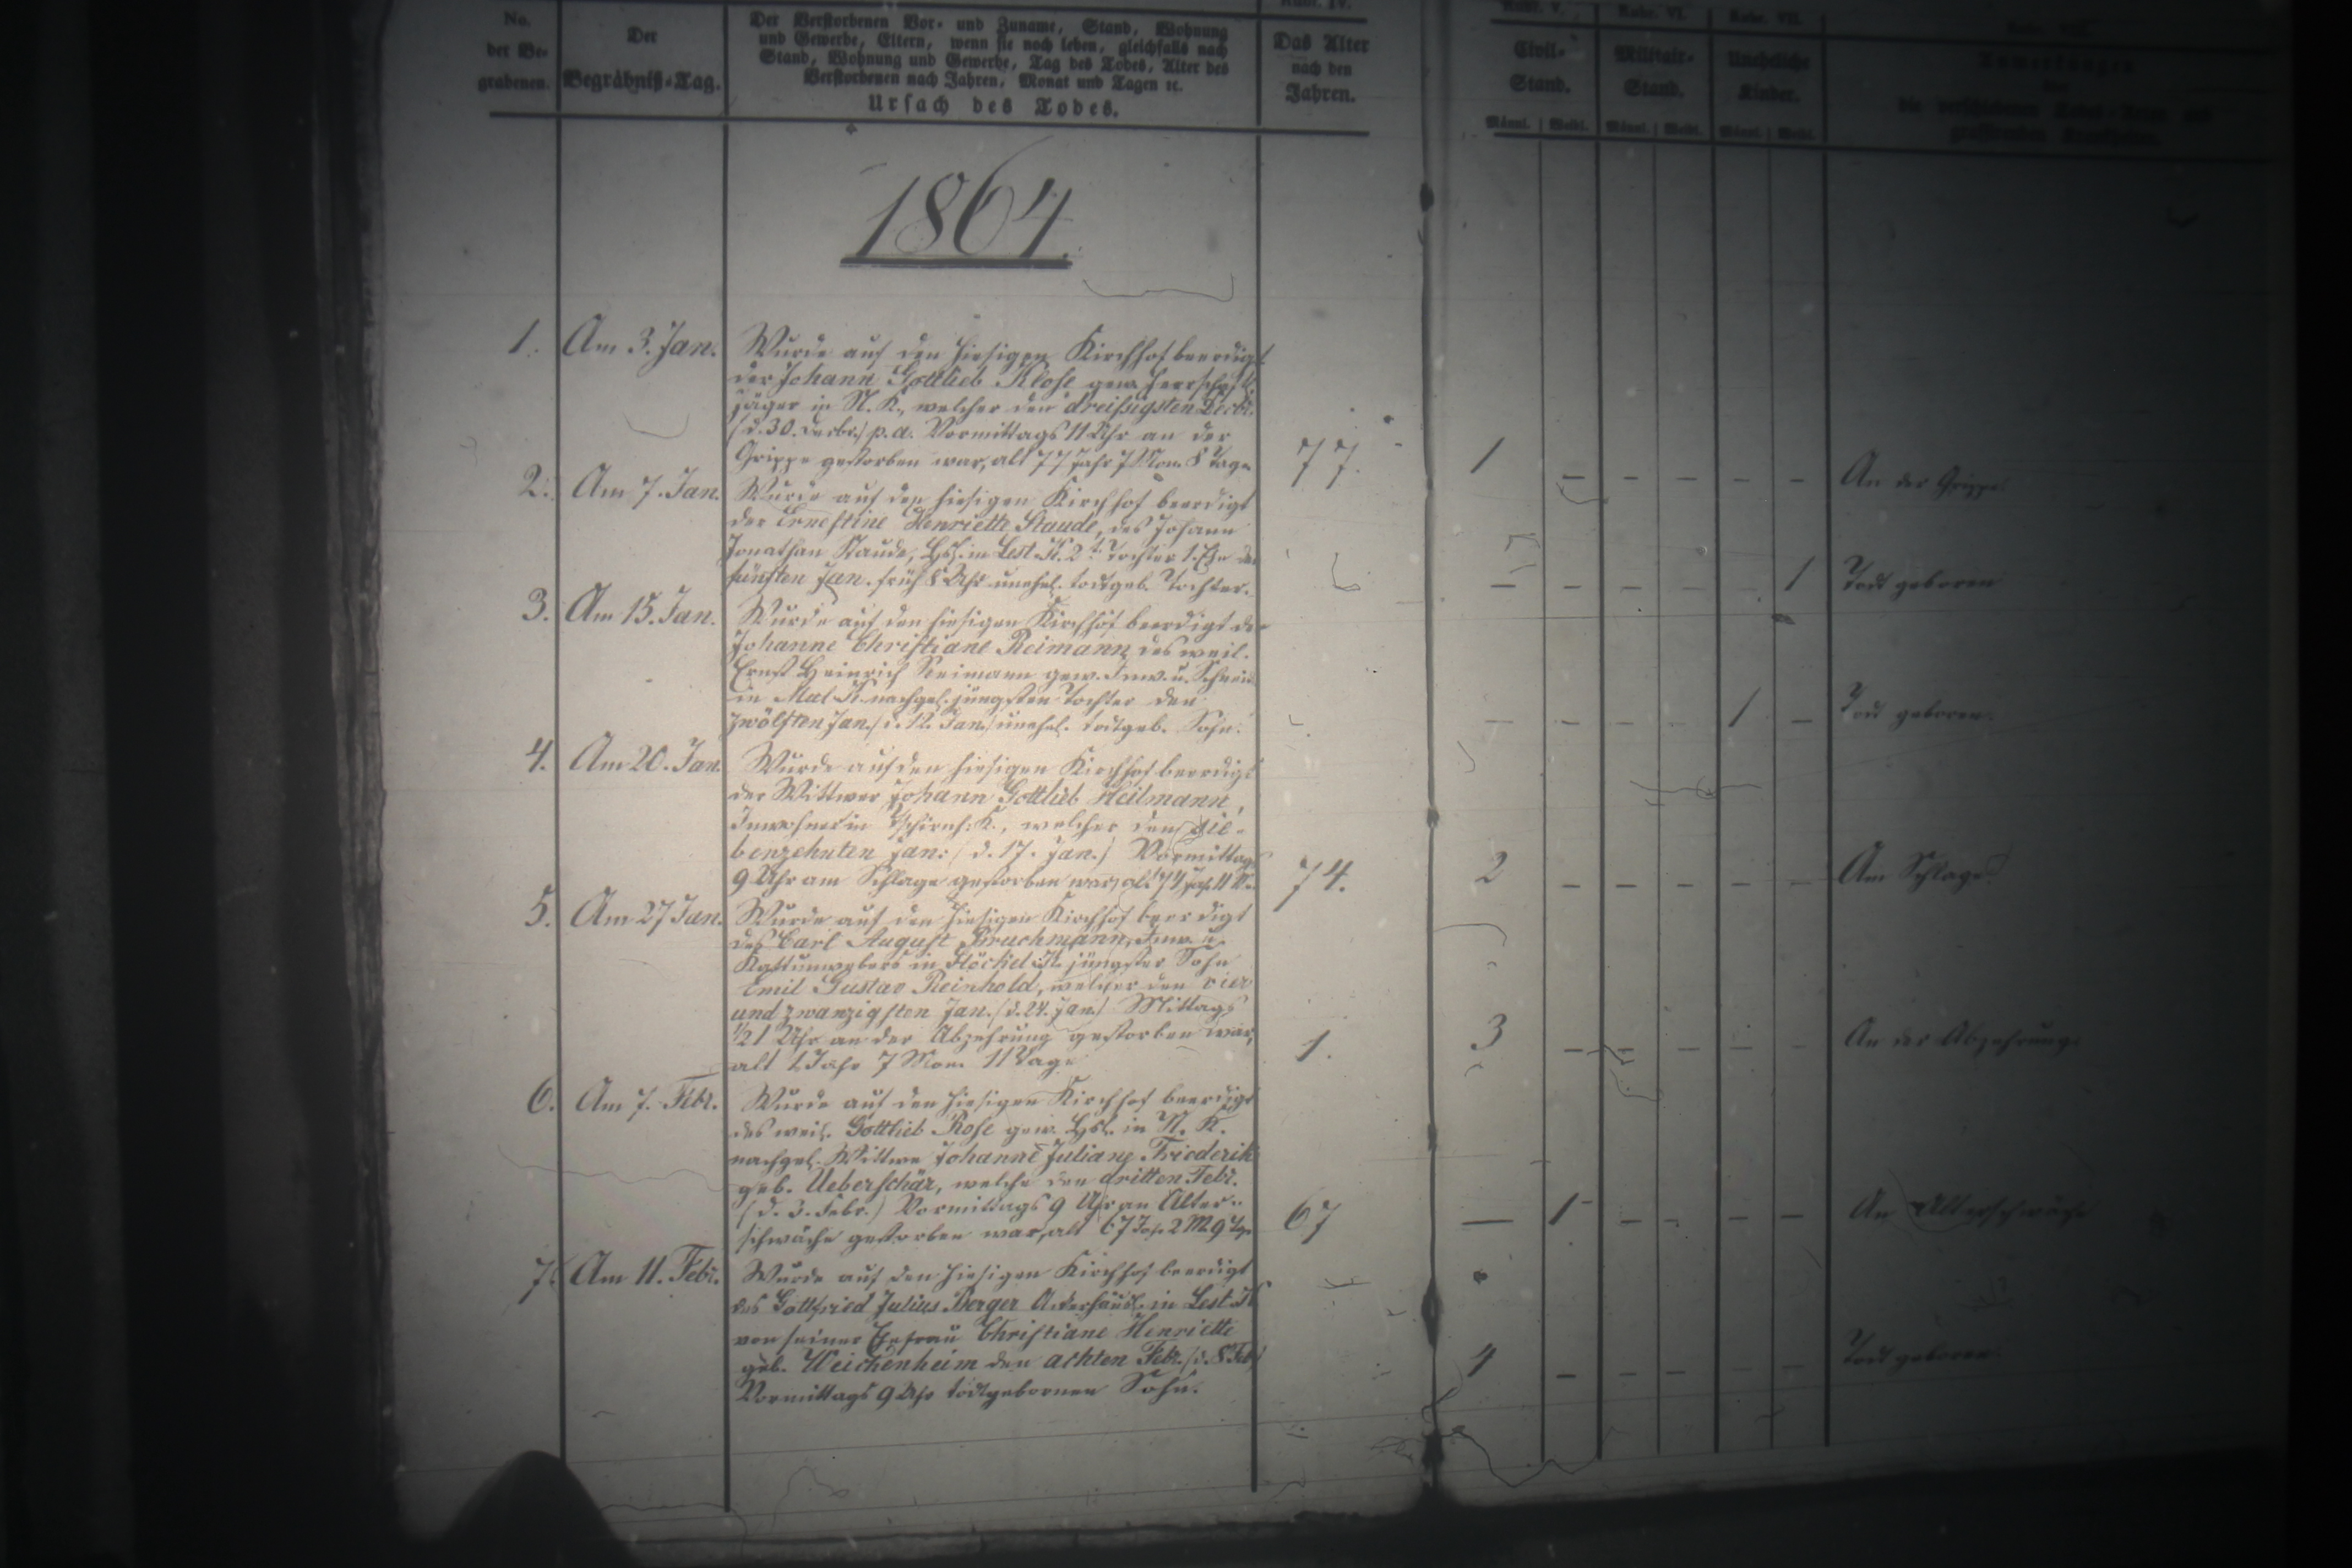 No.
der Be-
grabenen.
Der
Begräbniß-Tag.
Der Verstorbenen Vor- und Zuname, Stand, Wohnung
und Gewerbe, Eltern, wenn sie noch leben, gleichfalls nach
Stand, Wohnung und Gewerbe, Tag des Todes, Alter des
Verstorbenen nach Jahren, Monat und Tagen ꝛc.
Ursach des Todes.
Rubr. IV.
Das Alter
nach den
Jahren.
Rubr. V.
Civil-
Stand.
Männl. | Weibl.
Rubr. VI.
Militair-
Stand.
Männl. | Weibl.
Rubr. VII.
Uneheliche
Kinder.
Männl. | Weibl.
1864.
1. Am 3. Jan.
Wurde auf den hiesigen Kirchhof beerdigt
der Johann Gottlieb Klose gew. herrschaftl.
Jäger in N. K., welcher den dreißigsten Decbr.
(d. 30. Decbr.) p. a. Vormittags 11 Uhr an der
Grippe gestorben war, alt 77 Jahr 7 Mon. 8 Tage
77. 1 – – – – – An der Grippe
2. Am 7. Jan.
Wurde auf den hiesigen Kirchhof beerdigt
der Ernestine Henriette Staude, des Johann
Jonathan Staude, in Lest. K. 2t. Tochter 1. Ehe
fünften Jan. früh 8 Uhr unehel. todtgeb. Tochter.
– – – – – 1 Todt geboren
3. Am 15. Jan.
Wurde auf den hiesigen Kirchhof beerdigt der
Johanne Christiane Reimann, des weil.
Ernst Heinrich Reimann gew. Inw. u.
in K. nachgel. jüngsten Tochter den
zwölften Jan. (d. 12. Jan.) unehel. todtgeb. Sohn.
– – – – 1 – Todt geboren.
4. Am 20. Jan.
Wurde auf den hiesigen Kirchhof beerdigt
der Wittwer Johann Gottlieb Heilmann,
Inwohner in Tschirnh: K., welcher den sie-
benzehnten Jan: (d. 17. Jan.) Vormittag
9 Uhr am Schlage gestorben war, alt 74 Jah.
74. 2 – – – – – Am Schlage
5. Am 27 Jan.
Wurde auf den hiesigen Kirchhof beerdigt
des Carl August Bruchmann, Inw. u.
Kattunwebers in Stöckel K. jüngster Sohn
Emil Gustav Reinhold, welcher den vier
und zwanzigsten Jan. (d. 24. Jan.) Mittags
½1 Uhr an der Abzehrung gestorben war,
alt 1 Jahr 7 Mon. 11 Tage
1. 3 – – – – – An der Abzehrung.
6. Am 7. Febr.
Wurde auf den hiesigen Kirchhof beerdigt
des weil. Gottlieb Rose gew. Hsl. in N. K.
nachgel. Wittwe Johanne Juliane Friederik
geb. Ueberschär, welche den dritten Febr.
(d. 3. Febr.) Vormittags 9 Uhr an Alter-
schwäche gestorben war, alt 67 Jah. 2 M 9 Tge
67 – 1 – – – – An Altersschwäche
7. Am 11. Febr.
Wurde auf den hiesigen Kirchhof beerdigt
des Gottfried Julius Berger Ackerhäusl. in Lest. K
von seiner Ehefrau Christiane Henriette
geb. Weichenheim den achten Febr. (d. 8 Feb)
Vormittags 9 Uhr todtgebornen Sohn.
4 – – – – – Todt geboren.